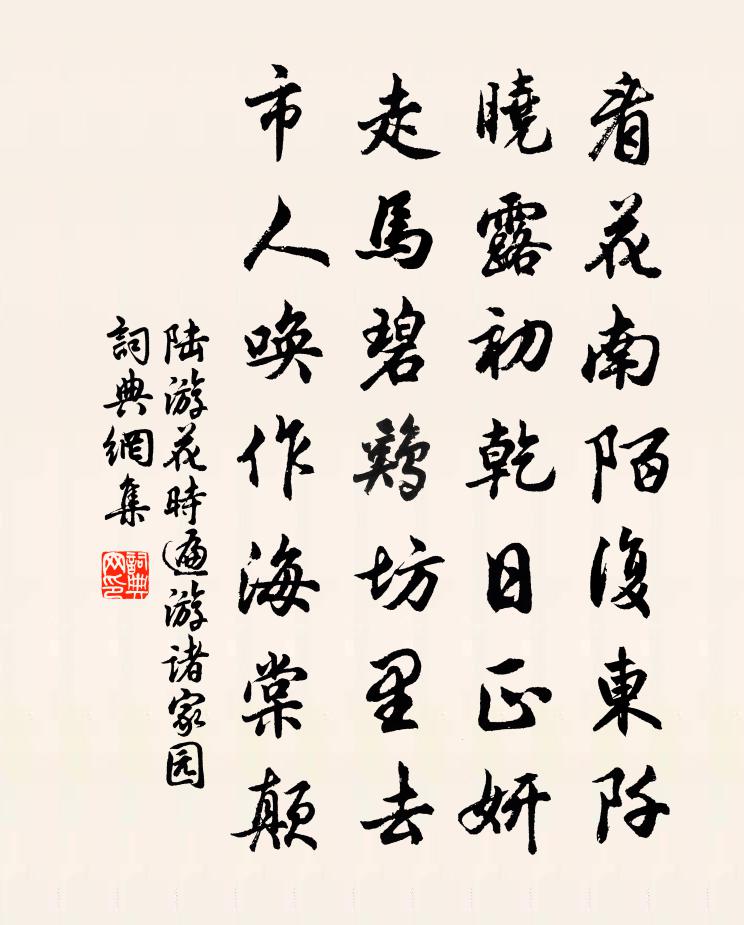 看花南陌復東阡
曉露初乾日正妍
走馬碧鷄坊里去
市人喚作海棠顛
陆游花時遍游诸家园
詞典網集
詞典网印